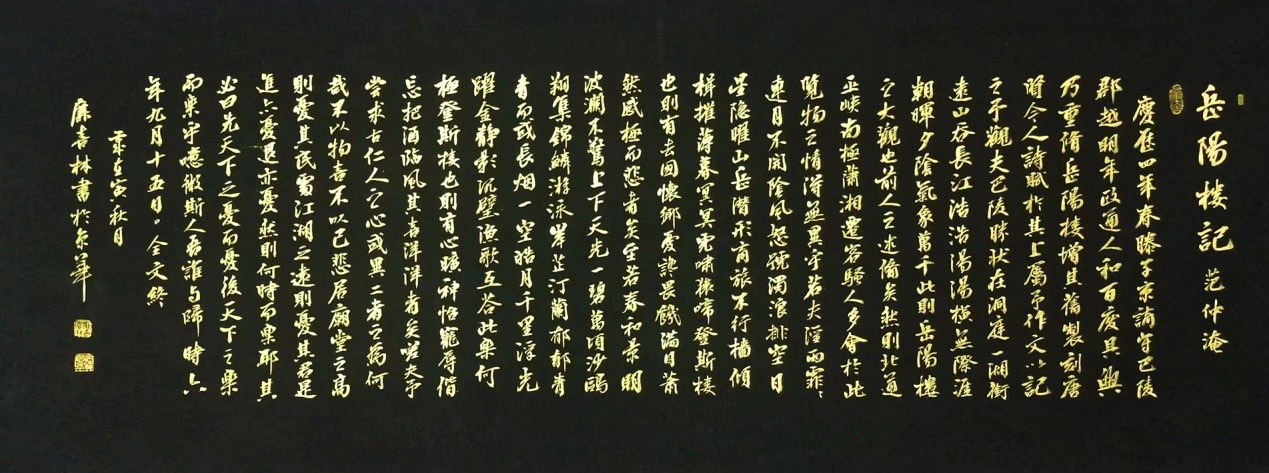 岳陽楼記 范仲淹
慶歷四年春滕子京謫守巴陵
郡越明年政通人和百廢具興
乃重脩岳陽樓增其舊製刻唐
賢今人詩賦於其上屬予作文以記
之予觀夫巴陵勝狀在洞庭一湖銜
遠山吞長江浩浩湯湯橫無際涯
朝暉夕陰氣象萬千此則岳陽樓
之大觀也前人之述備矣然則北通
巫峽南極瀟湘遷客騷人多會於此
覽物之情得無異乎若夫淫雨霏々
連月不開陰風怒號濁浪排空日
星隱曜山岳潛形商旅不行檣傾
楫摧薄暮冥冥虎嘯猿啼登斯樓
也則有去國懷鄉憂讒畏譏滿目蕭
然感極而悲者矣至若春和景明
波瀾不驚上下天光一碧萬頃沙鷗
翔集錦鱗游泳岸芷汀蘭郁郁青
青而或長烟一空皓月千里浮光
躍金靜影沉璧漁歌互答此樂何
極登斯樓也則有心曠神怡寵辱偕
忘把酒臨風其喜洋洋者矣嗟夫予
嘗求古仁人之心或異二者之為何
哉不以物喜不以己悲居廟堂之高
則憂其民處江湖之遠則憂其君是
進亦憂退亦憂然則何時而樂耶其
必曰先天下之憂而憂後天下之樂
而樂乎噫微斯人吾誰與歸時六
年九月十五日。全文終
在寅秋月
喜林書於京華